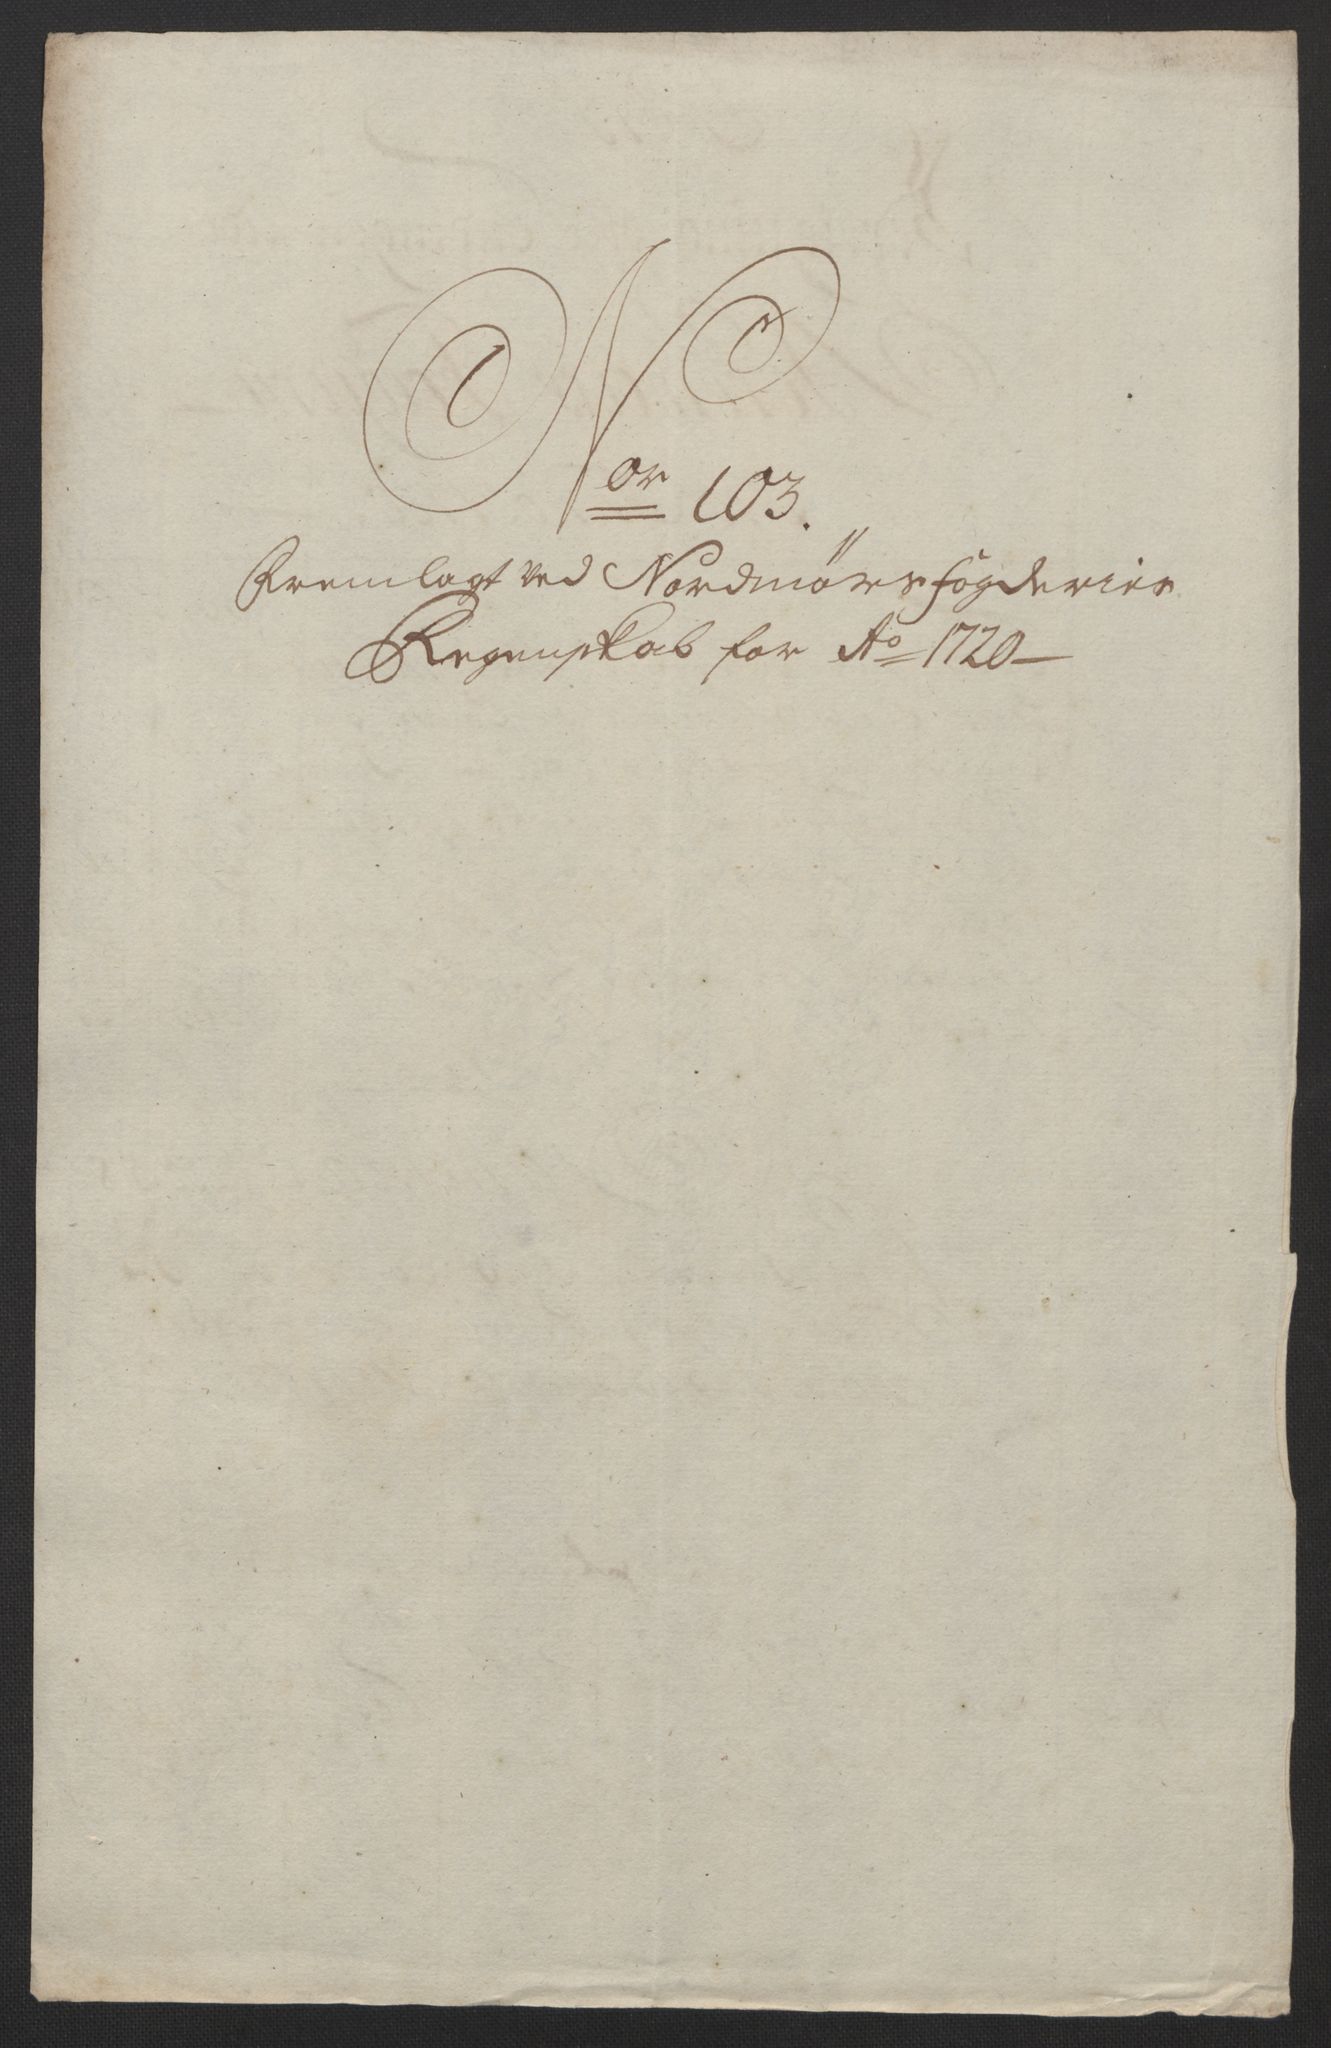 Nor 103.
Fremlagt ved Nordmørs fogderies
Regenskab for Ao 1720